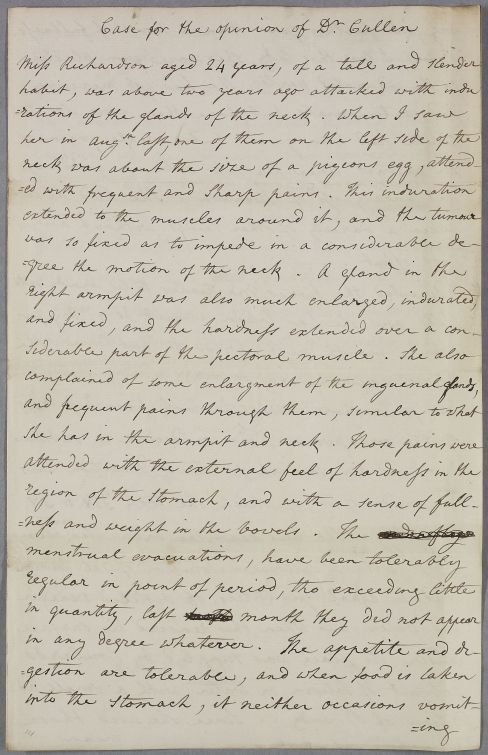 Case for the opinion of Dr. Cullen
Miss Richardson aged 24 years, of a tall and slender
habit, was above two years ago attacked with indu
=rations of the glands of the neck. When I saw
her in augst. last, one of them on the left side of the
neck was about the size of a pigeons egg, attend-
=ed with frequent and sharp pains. This induration
extended to the muscles around it, and the tumour
was so fixed as to impede in a considerable de-
=gree the motion of the neck. A gland in the
right armpit was also much enlarged, indurated,
and fixed, and the hardness extended over a con-
siderable part of the pectoral muscle. She also
complained of some enlargment of the inguenal glands,
and frequent pains through them, similar to what
she has in the armpit and neck. Those pains were
attended with the external feel of hardness in the
region of the stomach, and with a sense of full-
=ness and weight in the bowels. The
menstrual evacuations, have been tolerably
regular in point of period, tho exceeding little
in quantity, last month they did not appear
in any degree whatever. The appetite and di-
=gestion are tolerable, and when food is taken
into the stomach, it neither occasions vomit-
=ing